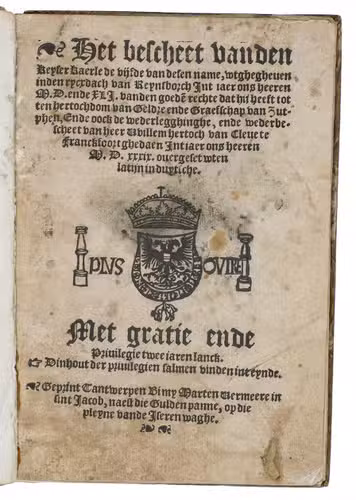 Het bescheet vanden
Keyser Kaerle de vijfde van desen name, wtghegheuen
inden rycxdach van Reynsborch Int iaer ons heeren
M.D. ende XLI. vanden goedē rechte dat hij heeft tot
ten hertochdom van Geldre ende Graefschap van Zut-
phen, Ende oock de wederlegghinghe, ende wederbe-
scheet van heer Willem hertoch van Cleue te
Franckfoort ghedaen Int iaer ons heeren
M. D. XXXIX. ouergeset wten
latijn in duytsche.
PLVS OVTRE
Met gratie ende
Priuilegie twee iaren lanck.
Dinhout der priuilegien salmen vinden int eynde.
Geprint Tantwerpen Bi my Marten Vermeere in
sint Jacob, naest die Gulden panne, op die
pleyne vande Iseren waghe.